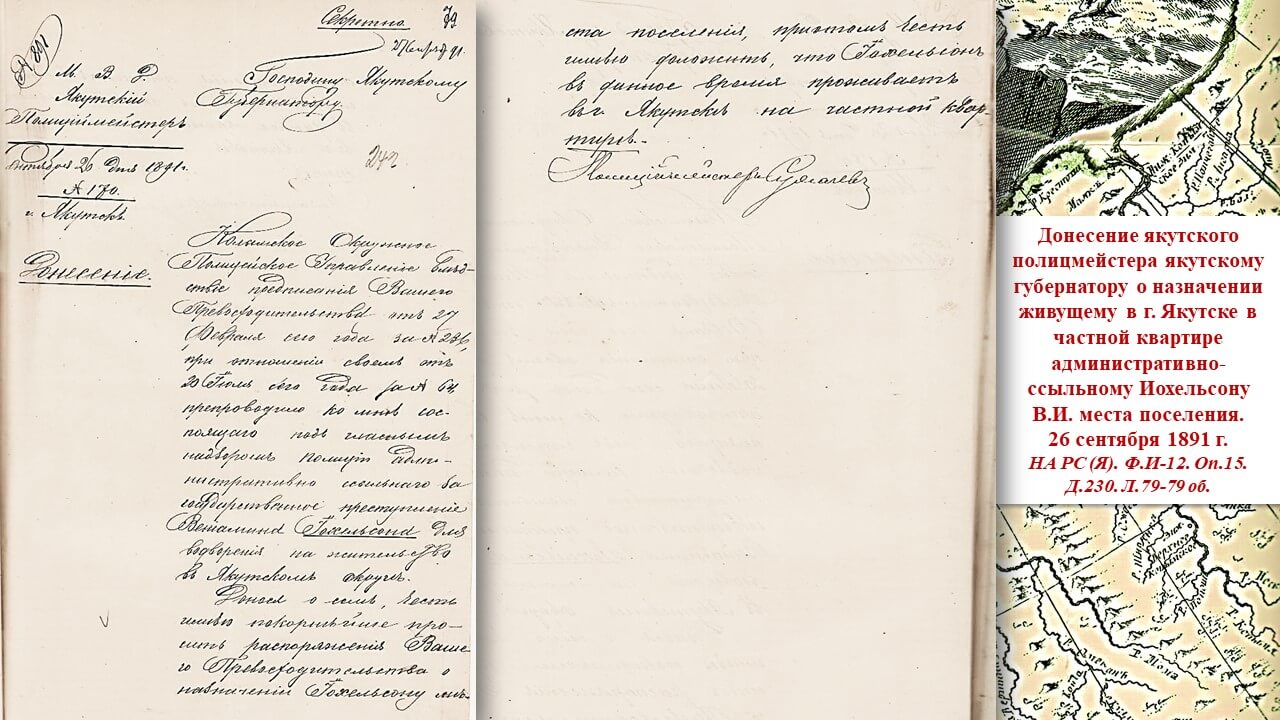 Секретно.
79
№ 891
27 Сентября 91.
М В Д
Якутскій
Полиціймейстеръ
Сентября 26 дня 1891 г.
№ 170.
г. Якутскъ
Донесеніе.
Господину Якутскому
Губернатору.
242
Колымское Окружное
Полицейское Управленіе вслѣд-
ствіе предписанія Вашего
Превосходительства отъ 27
Февраля сего года за № 236,
при отношеніи своемъ отъ
20 Іюля сего года за № 64
препроводило ко мнѣ сос-
тоящаго подъ гласнымъ
надзоромъ полиціи адми-
нистративно ссыльнаго за
государственное преступленіе
Веніамина Іохельсона для
водворенія на жительство
въ Якутскомъ округѣ.
Донося о семъ, честь
имѣю покорнѣйше про-
сить распоряженія Ваше-
го Превосходительства о
назначеніи Іохельсону мѣ-
ста поселенія, притомъ честь
имѣю доложить, что Іохельсонъ
въ данное время проживаетъ
въ г. Якутскѣ на частной квар-
тирѣ.
Полиціймейстеръ
Донесение якутского
полицмейстера якутскому
губернатору о назначении
живущему в г. Якутске в
частной квартире
административно-
ссыльному Иохельсону
В.И. места поселения.
26 сентября 1891 г.
НА РС (Я). Ф.И-12. Оп.15.
Д.230. Л.79-79 об.